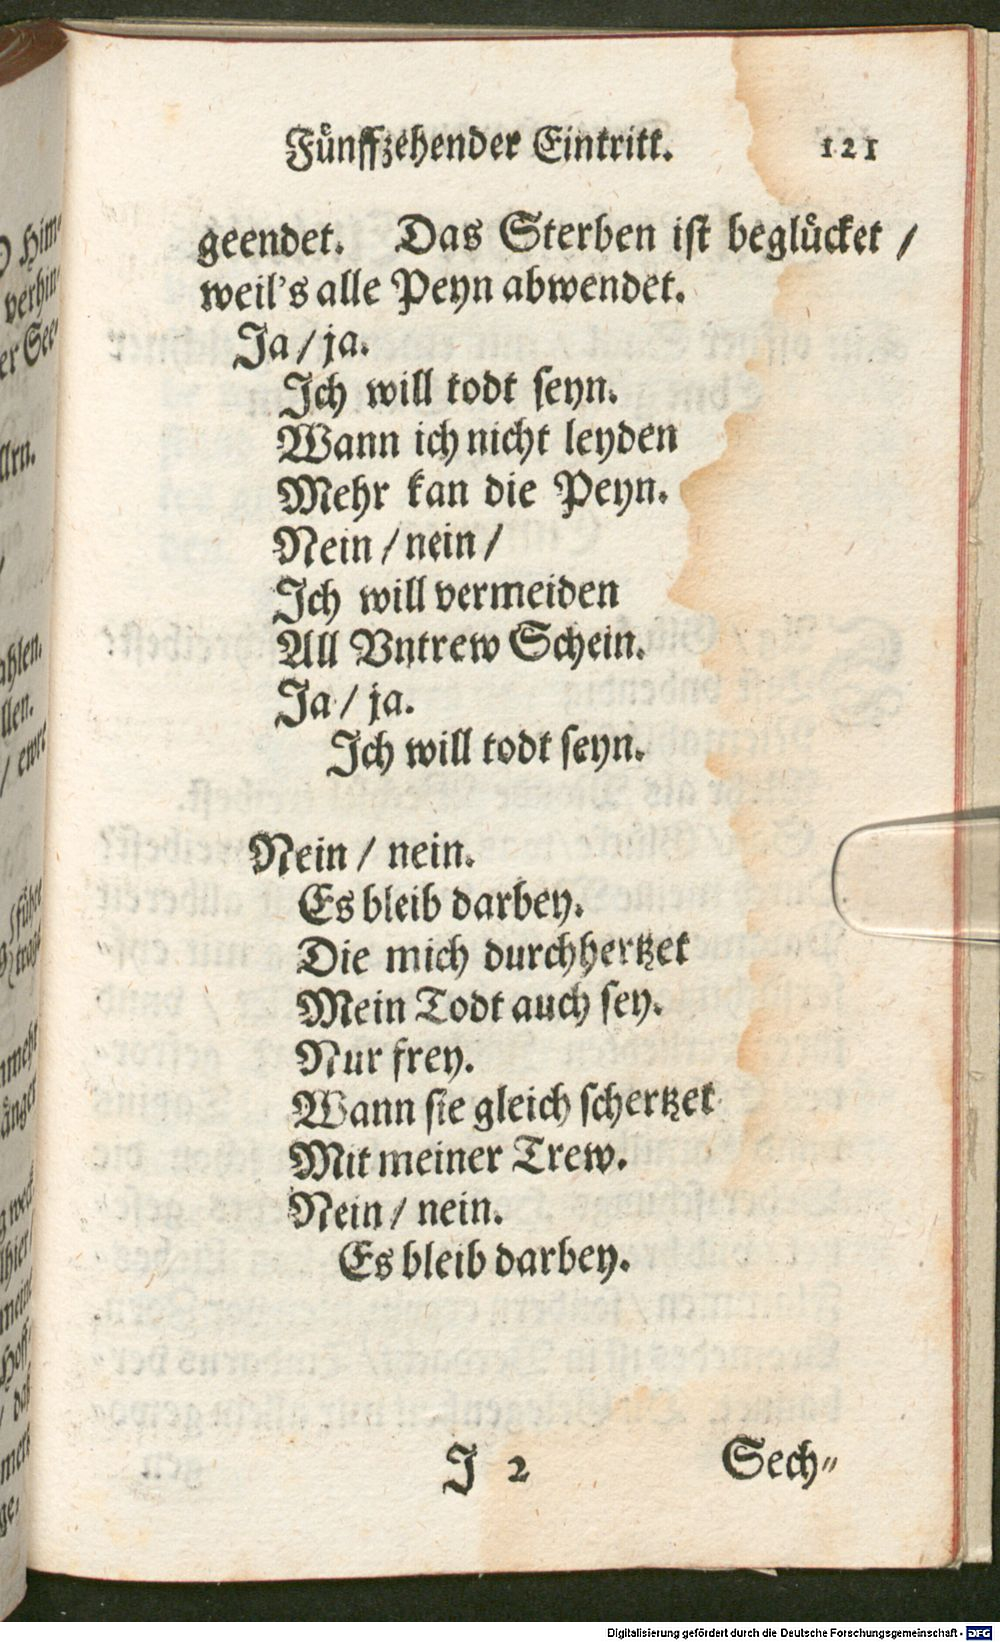 Fünffzehender Eintritt. 121
geendet. Das Sterben ist beglücket /
weil's alle Peyn abwendet.
Ja / ja.
Ich will todt seyn.
Wann ich nicht leyden
Mehr kan die Peyn.
Nein / nein /
Ich will vermeiden
All Vntrew Schein.
Ja / ja.
Ich will todt seyn.
Nein / nein.
Es bleib darbey.
Die mich durchhertzet
Mein Todt auch sey.
Nur frey.
Wann sie gleich schertzet
Mit meiner Trew.
Nein / nein.
Es bleib darbey.
J 2 Sech-
Digitalisierung gefördert durch die Deutsche Forschungsgemeinschaft - DFG